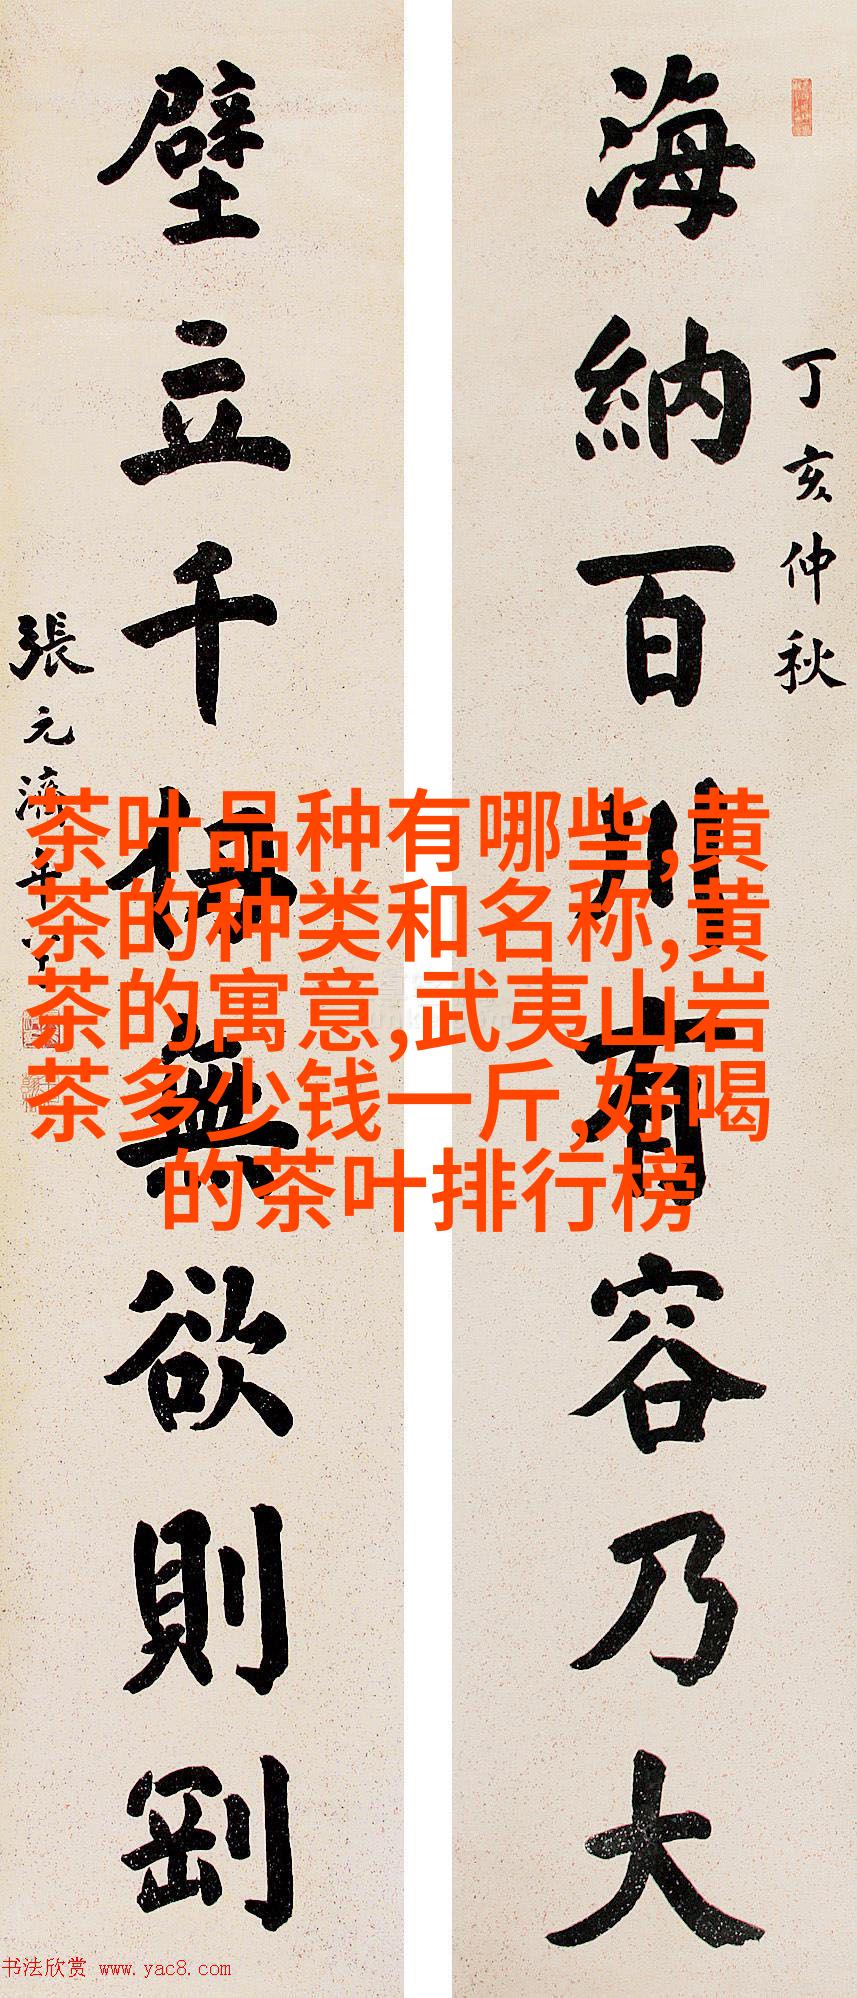 海納百川有容乃大
丁亥仲秋
壁立千仞無欲則剛
張元濟
茶叶品种有哪些,黄
茶的种类和名称,黄
茶的寓意,武夷山岩
茶多少钱一斤,好喝
的茶叶排行榜
书法欣赏 www.yac8.com